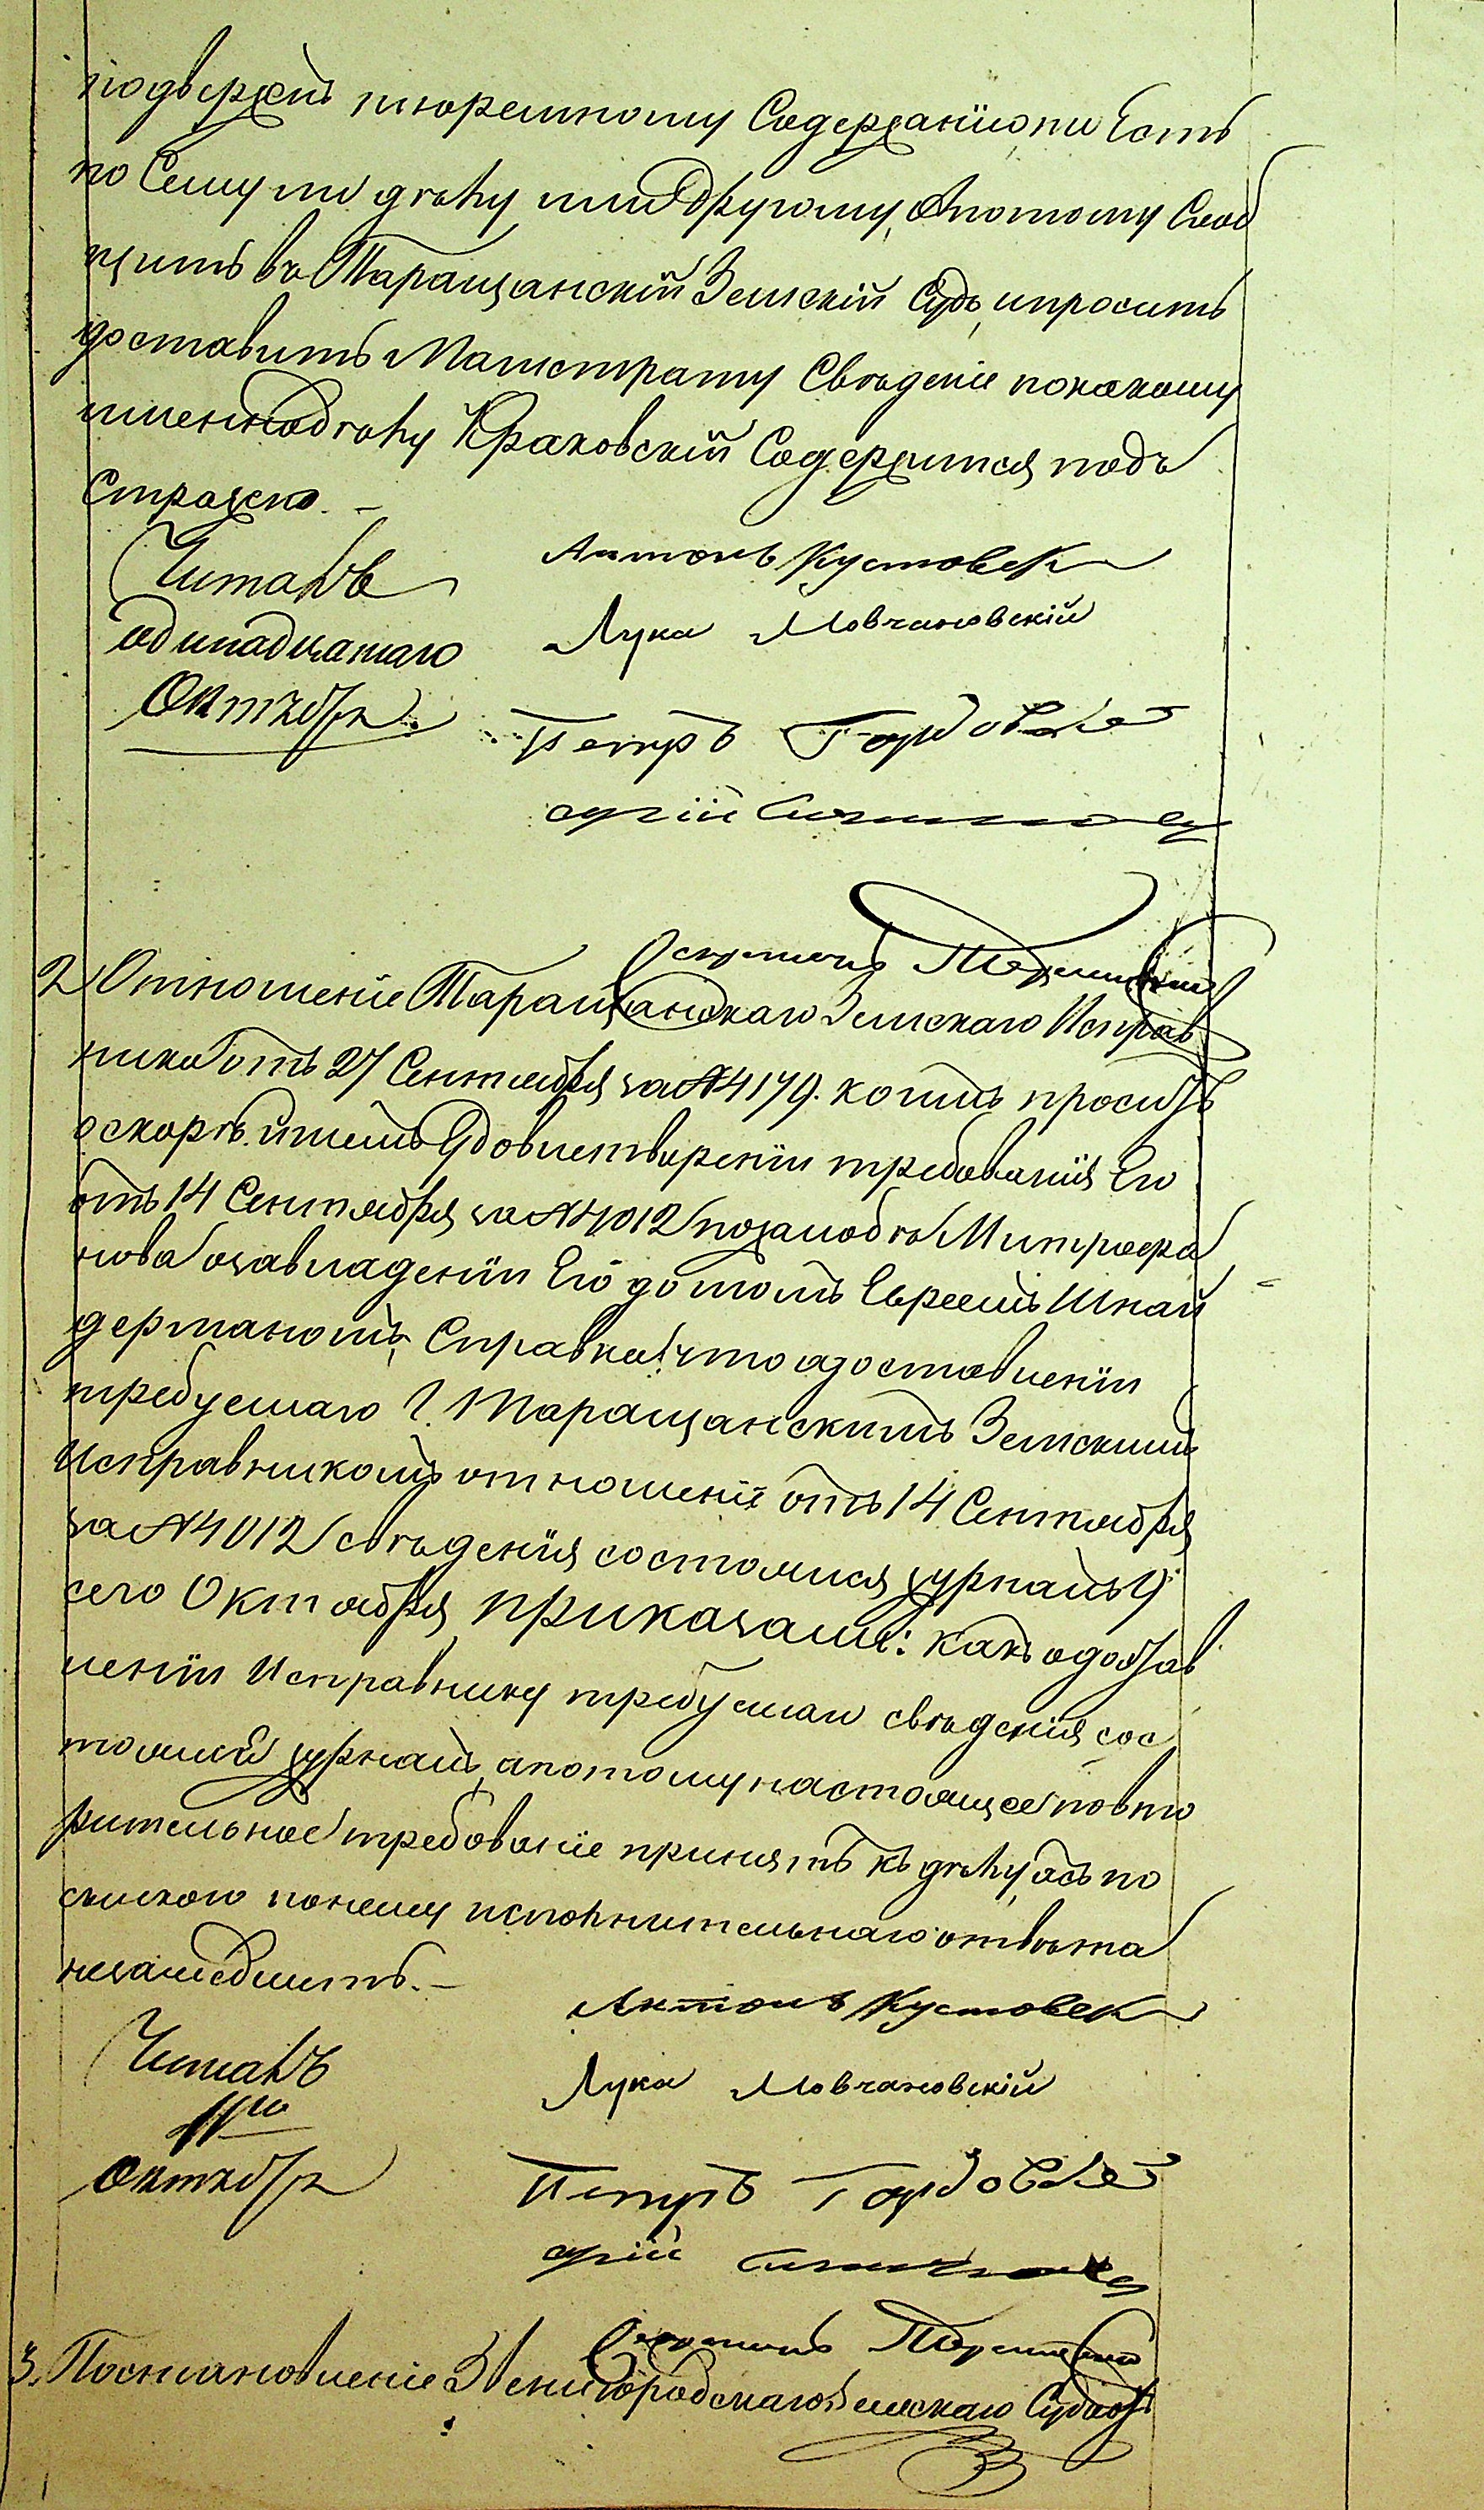 подвержен тюремному Содержанію, ти Есть
по Сему ли дѣлу или Другому, А потому Сооб
щить въ Таращанскій Земскій Судъ, и просить
доставить Магистрату Свѣденіе по какому
именно дѣлу Краковскій Содержится подъ
Стражею. —
Читалъ
одинадцатаго
Октября
Антонъ Кустовск
Лука Мовчановскій
Петръ Горбовскі
2 Отношеніе Таращанскаго Земскаго Исправ
ника отъ 27 Сентября за № 4179. коимъ проситъ
о скорѣйшемъ Удовлетвореніи требованія Его
отъ 14 Сентября за № 4012 по жалобѣ Митрофа
нова о завладеніи Его домомъ Евреемъ Шнай
дерманомъ, Справка: что о доставленіи
требуемаго Г. Таращанскимъ Земскимъ
Исправникомъ отношеніе отъ 14 Сентября
за № 4012 свѣденія состоялся журналъ 9
сего Октября, приказали: какъ о достав
леніи Исправнику требуемаго свѣденія сос
тоялся журналъ, а потому настоящее повто
рительное требованіе принять къ дѣлу, а съ по
сылкою по нему исполнительнаго отвѣта
незамедлить. —
Читалъ
11го
Октября
Антонъ Кустовск
Лука Мовчановскій
Петръ Горбовскі
3. Постановленіе Звенигородскаго Земскаго Суда отъ